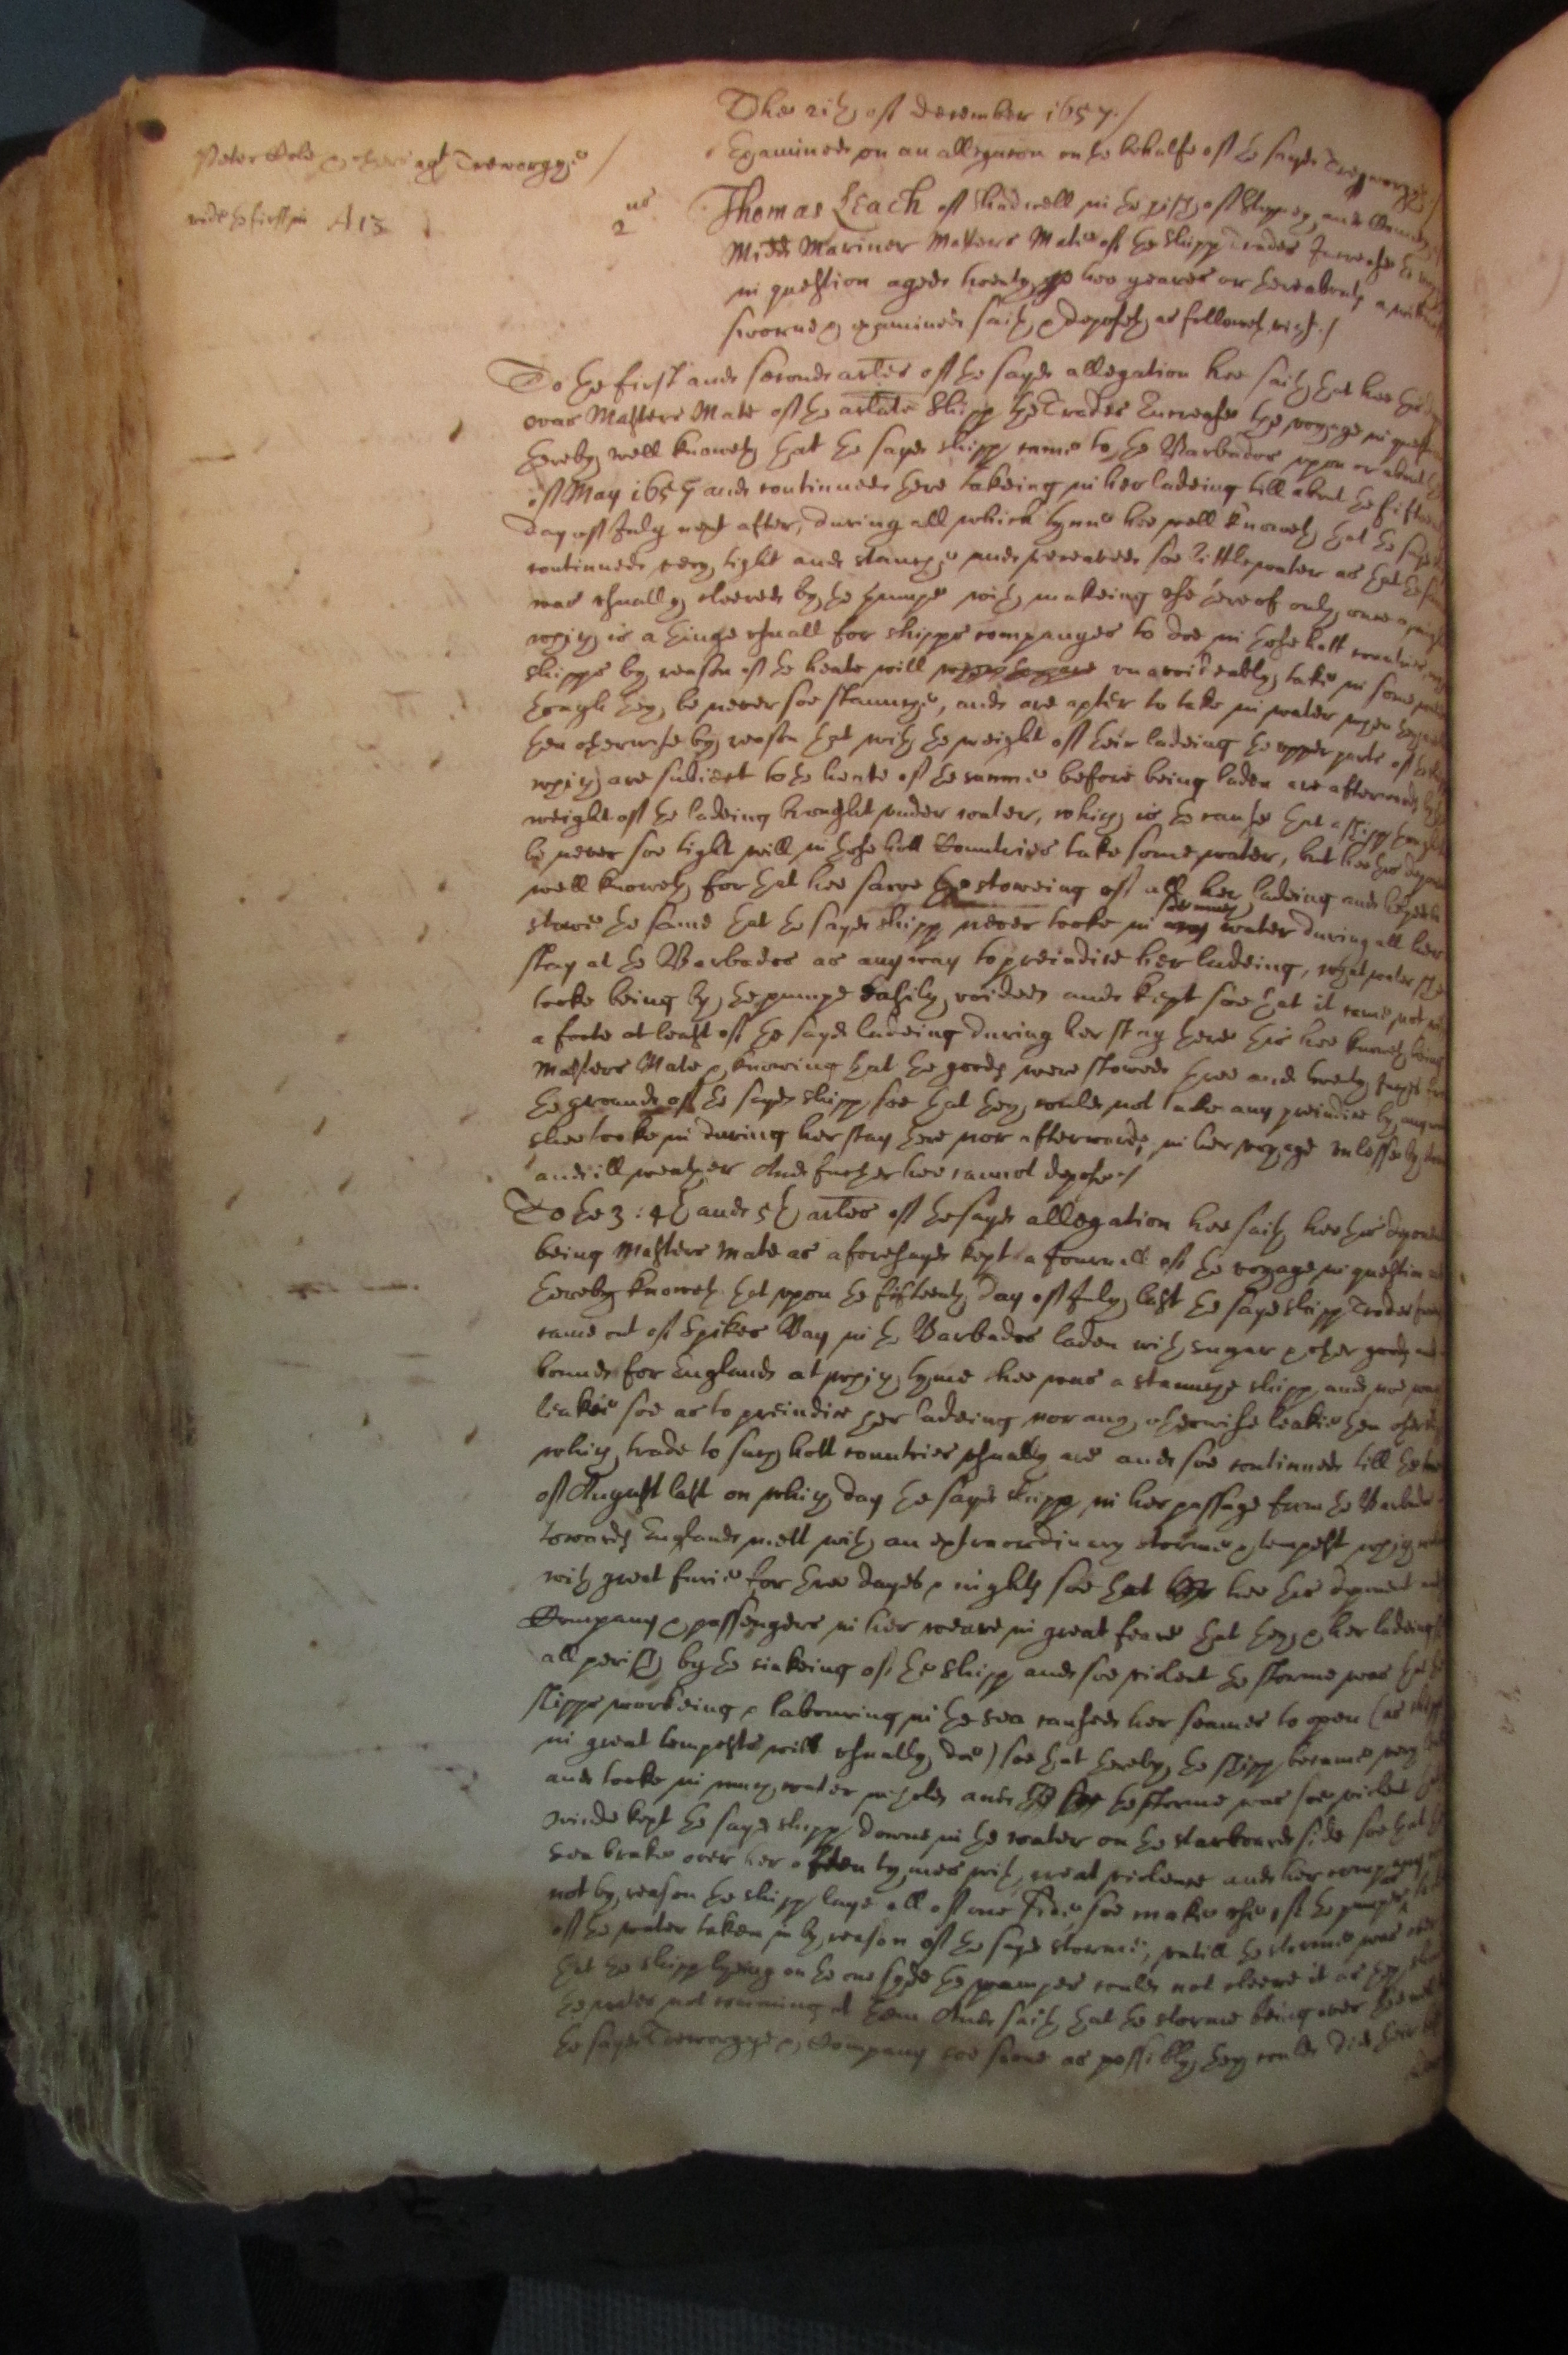 The 21th of december 1657./
Examined on an allegacon on the behalfe of the sayd Treworgye./
Peter Cole & others agt Treworgye /
vide the first in A 13.
2us
Thomas Leach of Shadwell in the parish of Stepney and County
Midd Mariner Masters Mate of the shipp Trades Increase the voyage
in question aged twenty two yeares or thereabouts a witnes
sworne & examined saith & deposeth as followeth vizt./
To the first and second artles of the sayd allegation hee saith that hee
was Masters Mate of the arlate Shipp the Trades Encrease the voyage in question
thereby well knoweth that the sayd shipp came to the Barbados upon or about the
of May 1657 and continued there takeing in her ladeing till about the fifteenth
day of July next after, during all which tyme hee well knoweth that the sayd
continued very tight and stanche and received soe little water as that the same
was usually cleered by the pumpe with makeing use thereof only once a night
which is a thinge usuall for shipps companyes to doe in those hott countries
shipps by reason of the heate will unavoideably take in some water
though they be never soe staunche, and are apter to take in water when they are
then otherwise by reason that with the weight of their ladeing the upper parts of the
which are subiect to the heate of the sunne before being laden are afterwards by the
weight of the ladeing brought under water, which is the cause that a shipp though
be never soe tight will in those hott Countries take some water, but hee this deponent
well knoweth for that hee sawe the stoweing of all her ladeing and helped to
stowe the same that the sayd shipp never tooke in soe much water during all her
stay at the Barbados as any way to preiudice her ladeing, what water she
tooke being by the pumpe easily voided and kept soe that it came not
a foote at least of the sayd ladeing during her stay there this hee knoweth being
Masters Mate & knowing that the goods were stowed three and twenty
the ground of the sayd shipp soe that they could not take any preiudice by any
shee tooke in during her stay there nor afterwards in her voyage unlesse by
and ill weather And further hee cannot depose./
To the 3: 4th and 5th artles of the sayd allegation hee saith hee this deponent
being Masters mate as aforesayd kept a Journall of the voyage in question
thereby knoweth that upon the fifteenth day of July last the sayd shipp Trades
came out of Spikes Bay in the Barbados laden with sugar & other goods and
bound for England at which tyme shee was a staunche shipp and noe way
leakie soe as to preiudice her ladeing nor any otherwise leakie then others
which trade to such hott countries usually are and soe continued till the
of August last on which day the sayd shipp in her passage from the Barbados
towards England mett with an extraordinary storme & tempest which
with great furie for three dayes & nights soe that hee this deponent and
Company & passengers in her weare in great feare that they & her ladeing
all perish by the sinkeing of the shipp and soe violent the storme was that the
shipps workeing & labouring in the sea caused her seames to open (as shipps
in great tempests will usually doe) soe that thereby the shipp became very
and tooke in much water in hold and the storme was soe violent
winde kept the sayd shipp downe in the water on the starboard side soe that the
sea brake over her often tymes with great violence and her company
not by reason the shipp laye all of one side soe make use of the pumpes
of the water taken in by reason of the sayd storme, untill the storme was over
that the shipp lyeing on the one syde the pumpes could not cleere it as they should
the water not comming at them And saith that the storme being over
the sayd Treworgye & Company soe soone as possibly they could did their